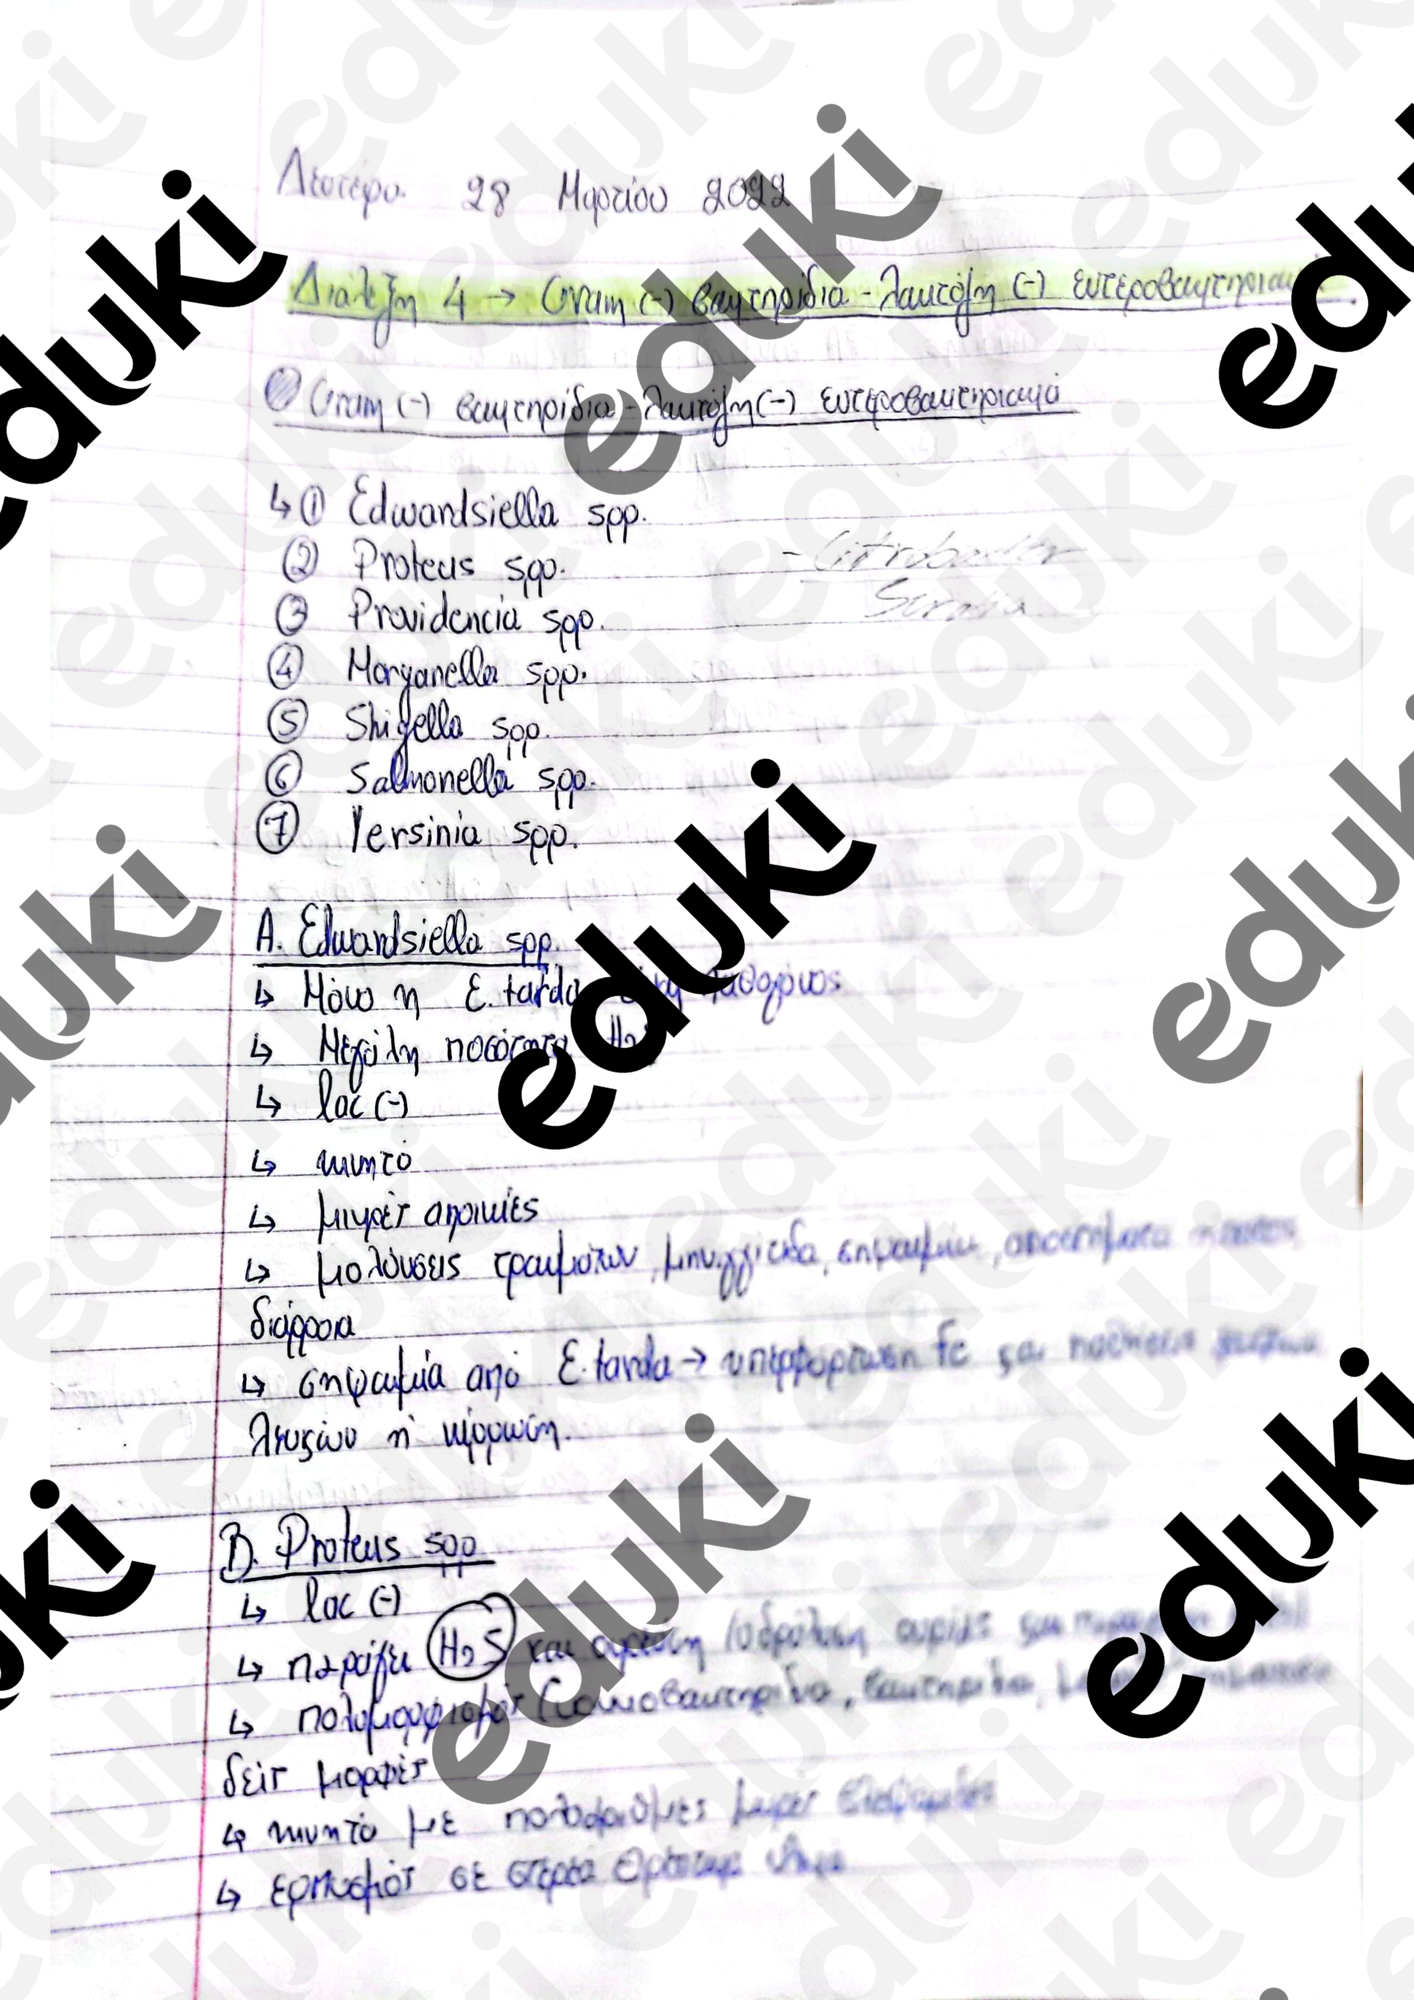 Δευτέρα 28 Μαρτίου 2022
Διάλεξη 4 → Gram (-) βακτηρίδια - λακτόζη (-) εντεροβακτηριακά
Gram (-) βακτηρίδια - λακτόζη (-) εντεροβακτηριακά
↳ ① Edwardsiella spp.
② Proteus spp.
- Citrobacter
③ Providencia spp.
Serratia
④ Morganella spp.
⑤ Shigella spp.
⑥ Salmonella spp.
⑦ Yersinia spp.
A. Edwardsiella spp.
↳ Μόνο η E. tarda παθογόνος
↳ Μεγάλη ποσότητα H₂S
↳ lac (-)
↳ κινητό
↳ μικρές αποικίες
↳ μολύνσεις τραυμάτων, μηνιγγίτιδα, σηψαιμία, αποστήματα ήπατος,
διάρροια
↳ σηψαιμία από E. tarda → υπερφόρτωση Fe και
ή κίρρωση.
B. Proteus spp
↳ lac (-)
↳ παράγει H₂S και ουρεάση (υδρόλυση ουρίας και
↳ πολυμορφισμός (κοκκοβακτηρίδια, βακτηρίδια,
δείς μορφές
↳ κινητό με πολυάριθμες
↳ ερπυσμός σε στερεά θρεπτικά υλικά
eduki
eduki
eduki
eduki
eduki
eduki
eduki
eduki
eduki
eduki